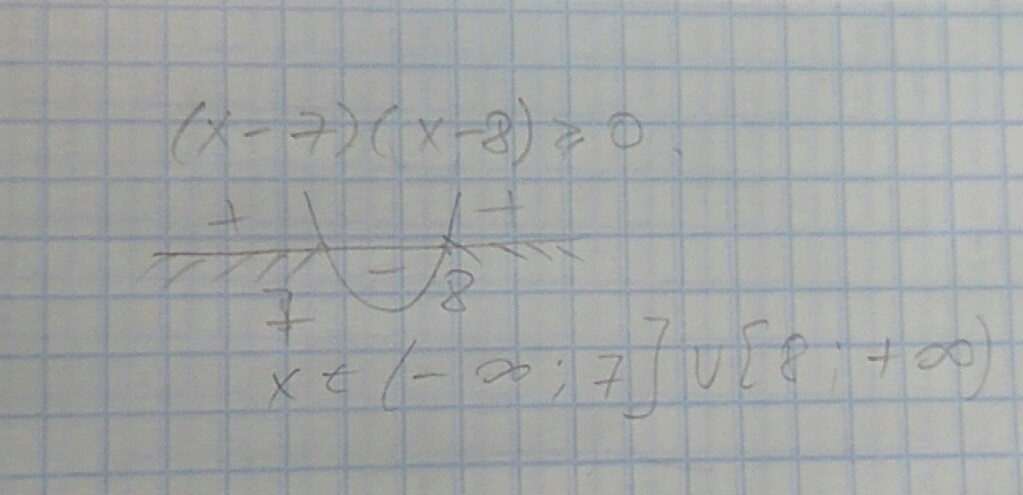 (x-7)(x-8)⩾0.
+ +
-
7 8
x∈(-∞;7]∪[8;+∞)